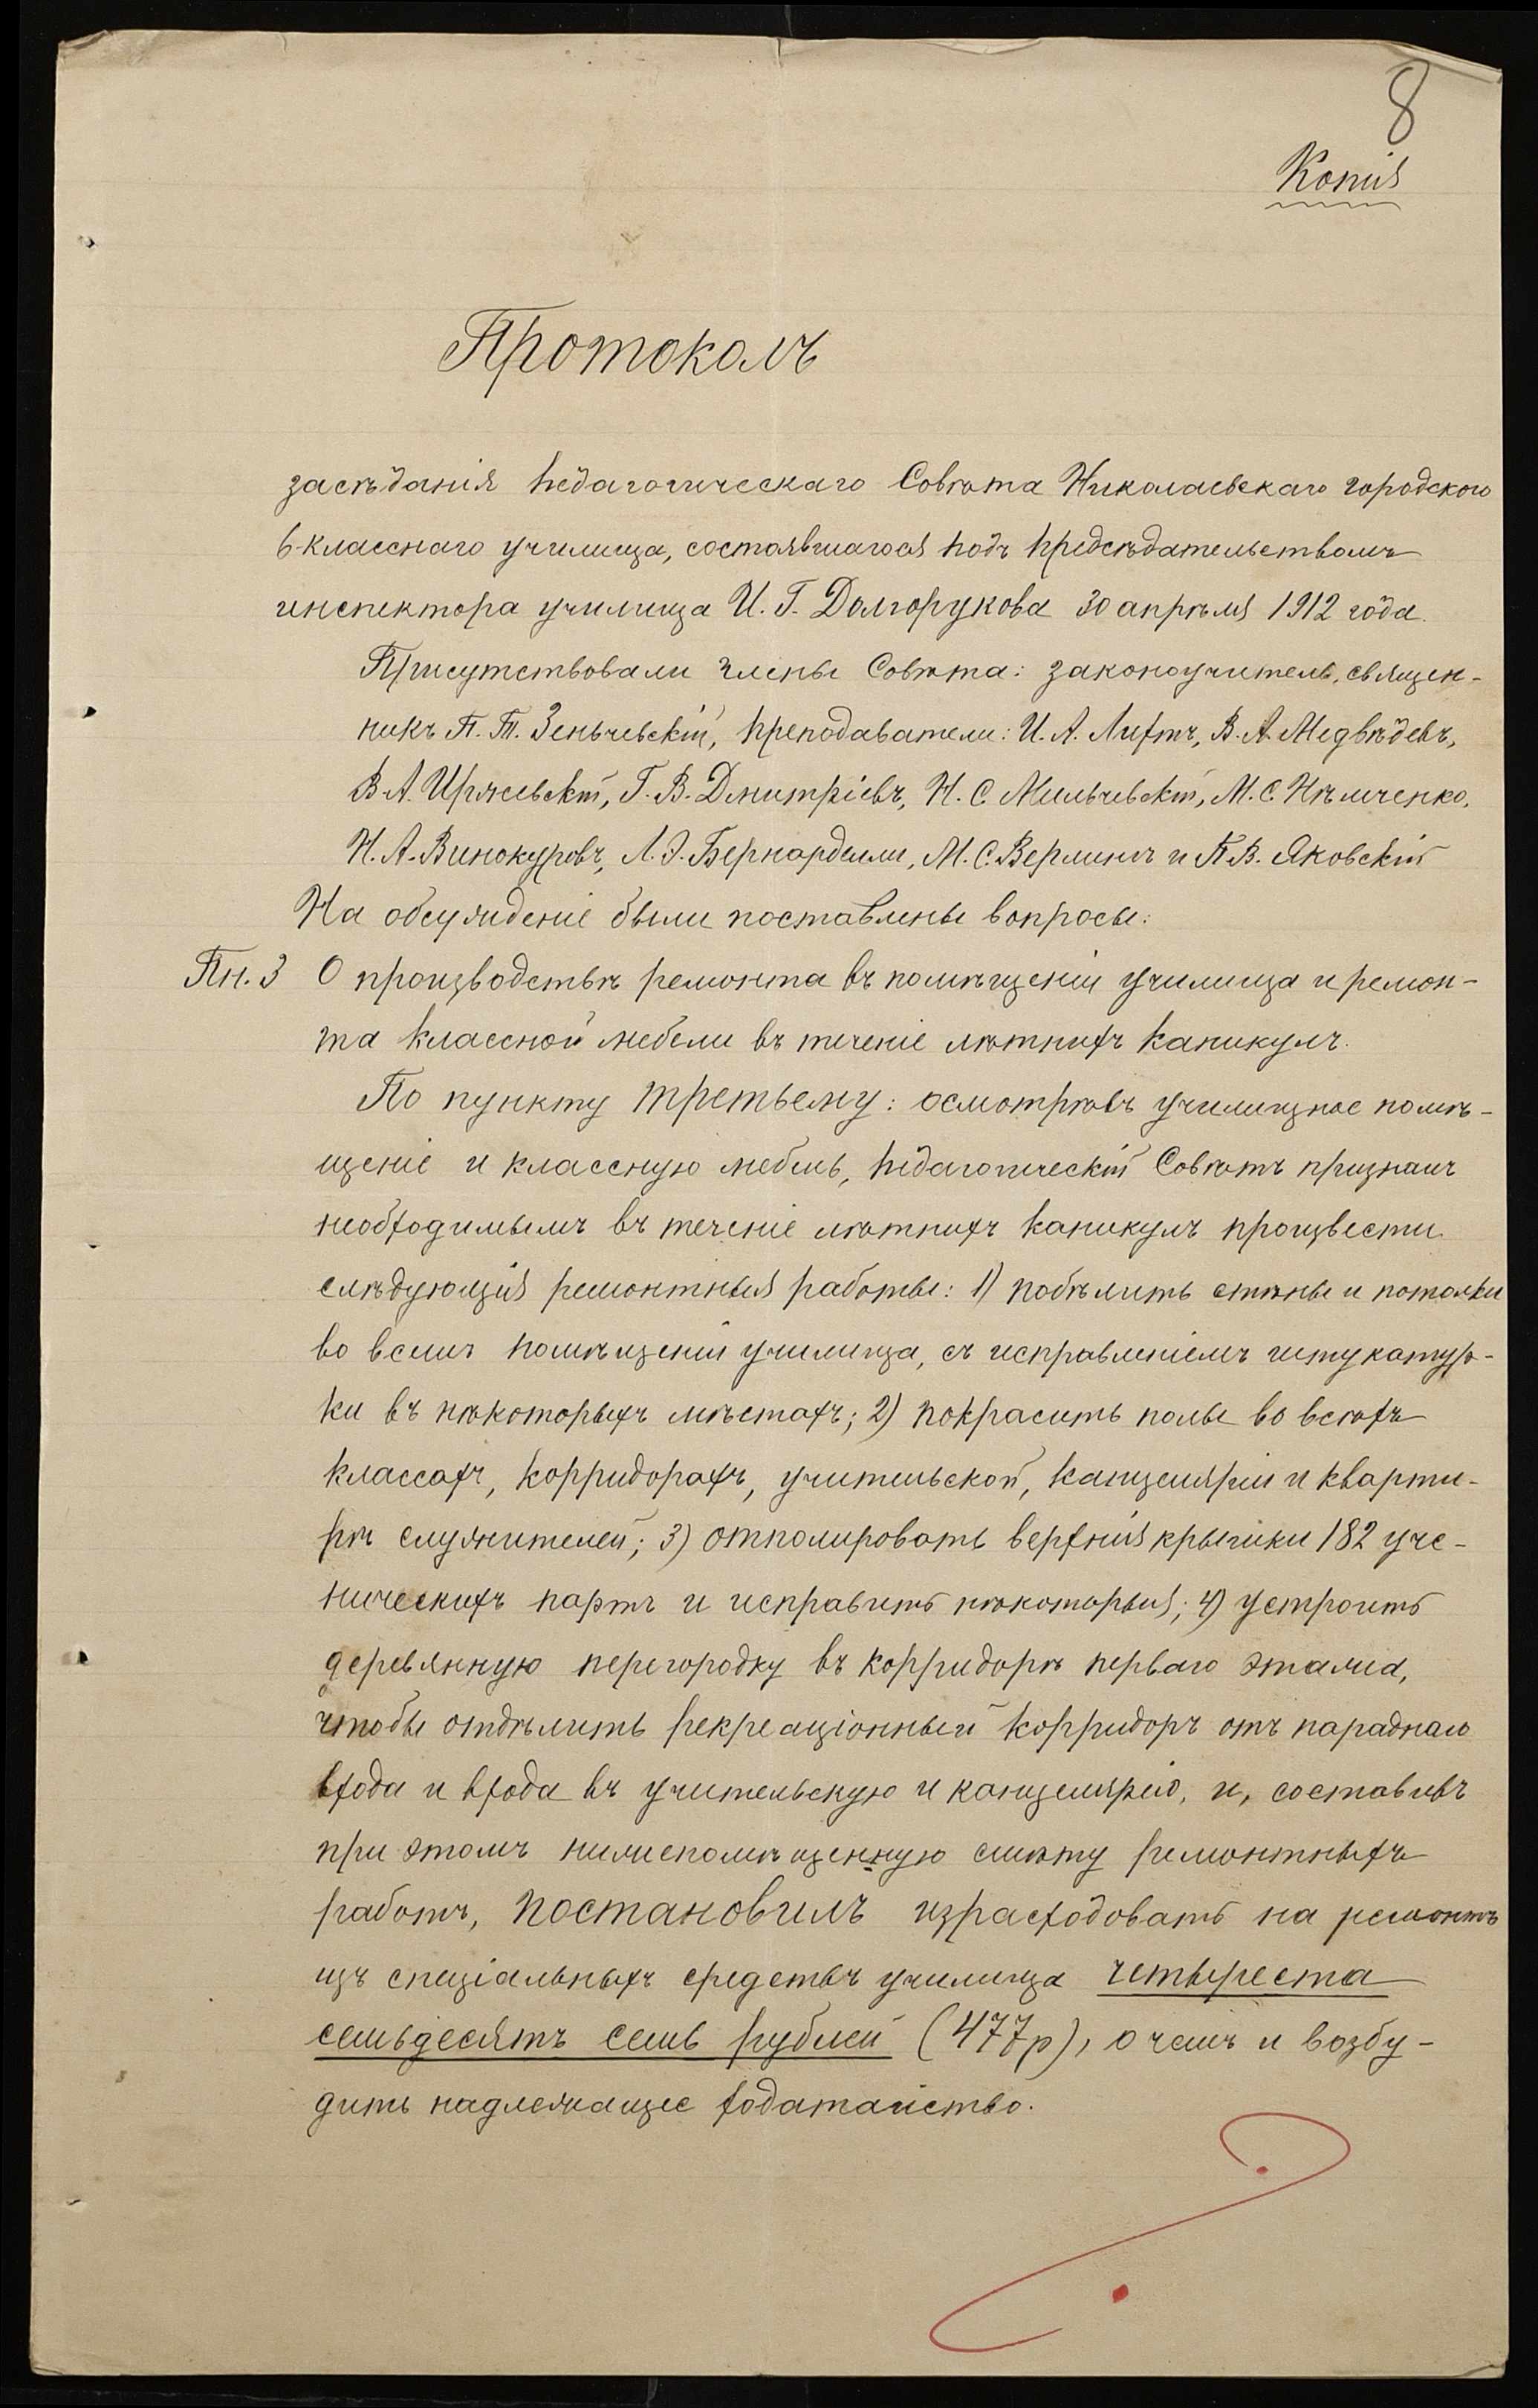 8
Копія
Протоколъ
засѣданія педагогическаго Совѣта Николаевскаго городского
6-класснаго училища, состоявшагося подъ предсѣдательствомъ
инспектора училища И. Г. Долгорукова 30 апрѣля 1912 года.
Присутствовали члены Совѣта: законоучитель, священ-
никъ П. Т. Зеньчевскій, преподаватели: И. А. Лифтъ, В. А. Медвѣдевъ,
В. А. Иржевскій, Г. В. Дмитріевъ, Н. С. Мильчевскій, М. С. Нѣмченко,
Н. А. Винокуровъ, Л. Э. Бернарделли, М. С. Верлинъ и П. В. Яковскій
На обсужденіе были поставлены вопросы:
Пн. 3 О производствѣ ремонта въ помѣщеніи училища и ремон-
та классной мебели въ теченіе лѣтнихъ каникулъ.
По пункту третьему: осмотрѣвъ училищное помѣ-
щеніе и классную мебель, педагогическій Совѣтъ призналъ
необходимымъ въ теченіе лѣтнихъ каникулъ произвести
слѣдующія ремонтныя работы: 1) побѣлить стѣны и потолки
во всемъ помѣщеніи училища, съ исправленіемъ штукатур-
ки въ нѣкоторыхъ мѣстахъ; 2) покрасить полы во всѣхъ
классахъ, корридорахъ, учительской, канцеляріи и кварти-
рѣ служителей; 3) отполировать верхнія крышки 182 уче-
ническихъ партъ и исправить нѣкоторыя; 4) устроить
деревянную перегородку въ корридорѣ перваго этажа,
чтобы отдѣлить рекреаціонный корридоръ отъ параднаго
входа и входа въ учительскую и канцелярію, и, составивъ
при этомъ нижепомѣщенную смѣту ремонтныхъ
работъ, постановилъ израсходовать на ремонтъ
изъ спеціальныхъ средствъ училища четыреста
семьдесятъ семь рублей (477р), о чемъ и возбу-
дить надлежащее ходатайство.